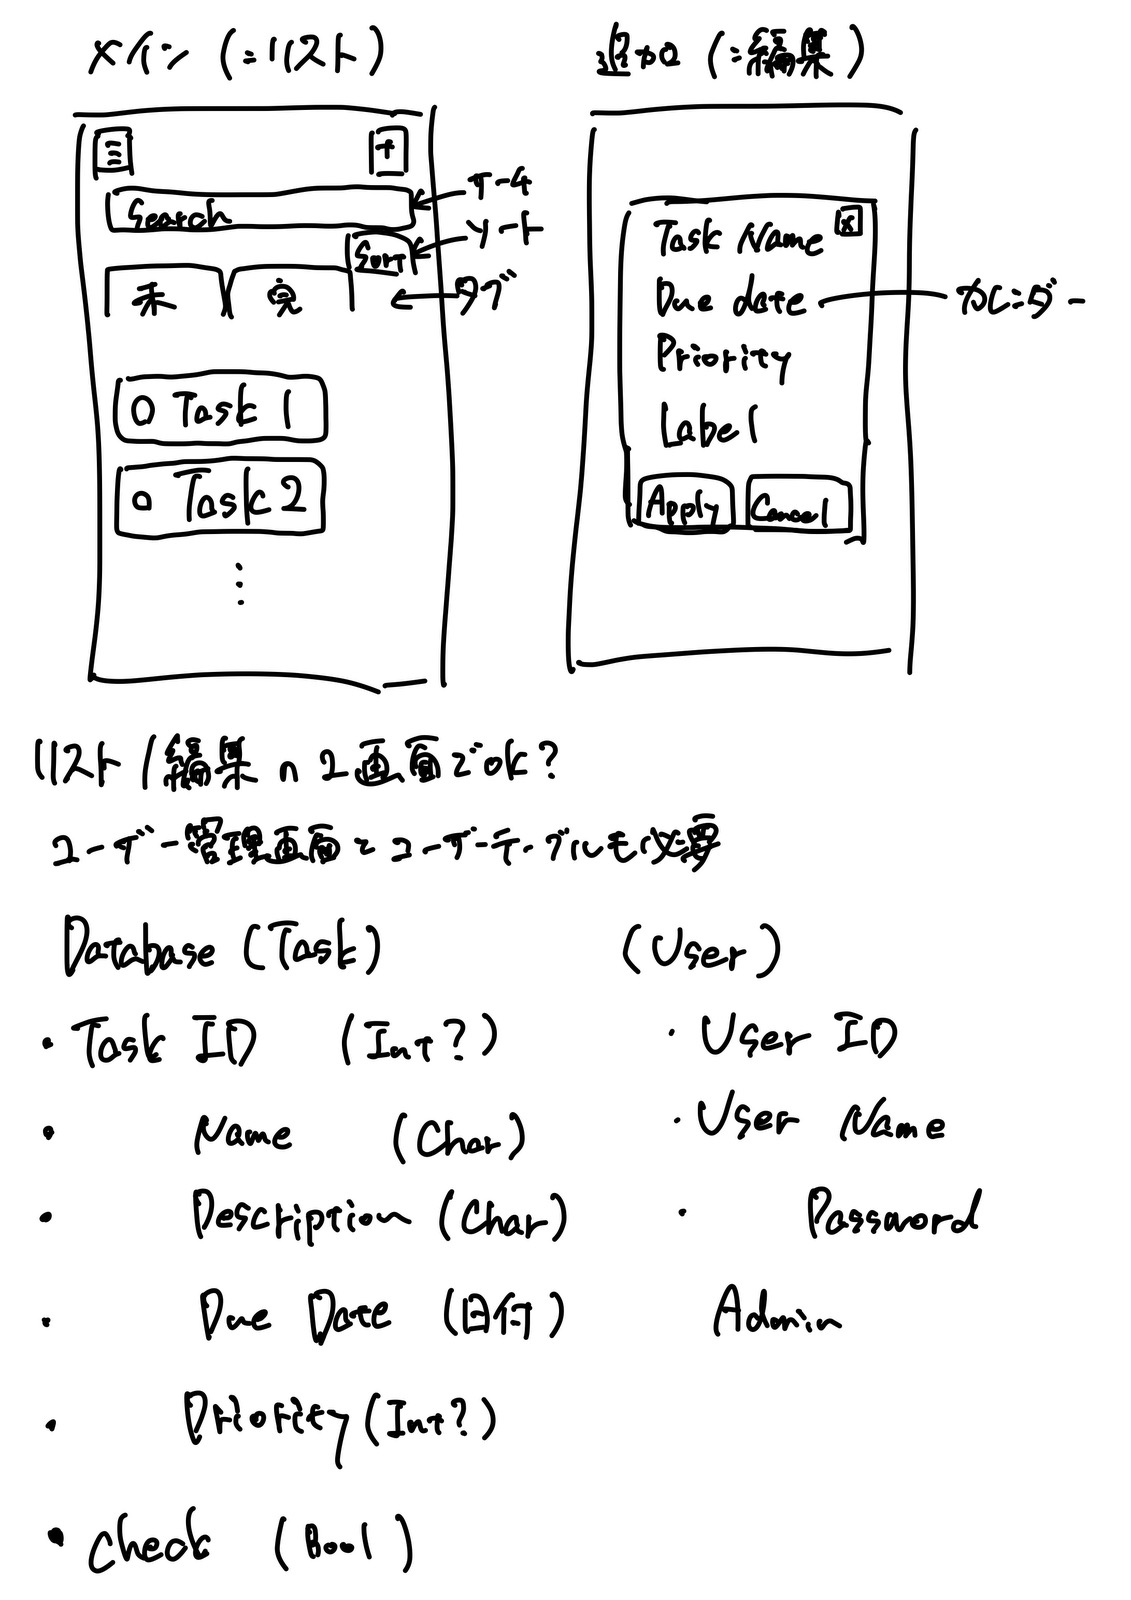 メイン (=リスト)
追加 (=編集)
+
Search
サーチ
Sort
ソート
未
完
タブ
Task 1
Task 2
Task Name
x
Due date
カレンダー
Priority
Label
Apply
Cancel
リスト/編集の2画面でOK?
ユーザー管理画面とユーザーテーブルも必要
Database (Task)
・Task ID (Int?)
・Name (Char)
・Description (Char)
・Due Date (日付)
・Priority (Int?)
・Check (Bool)
(User)
・User ID
・User Name
・Password
Admin